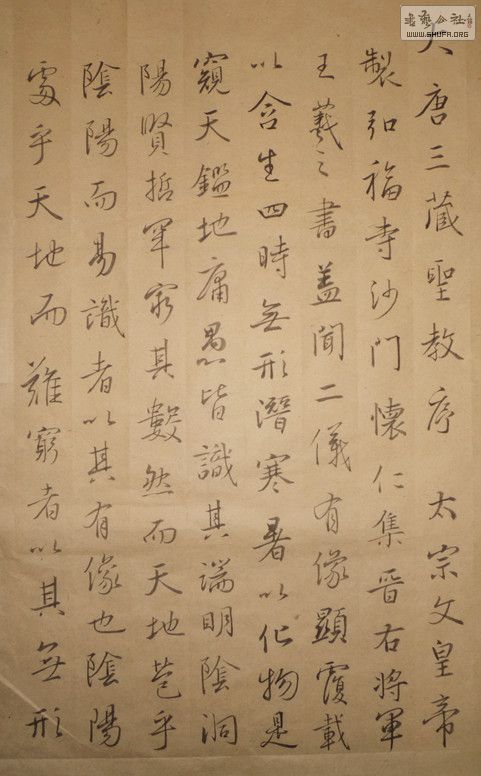 大唐三藏聖教序 太宗文皇帝
製弘福寺沙門懷仁集晉右將軍
王羲之書蓋聞二儀有像顯覆載
以含生四時無形潛寒暑以化物是
窺天鑑地庸愚皆識其端明陰洞
陽賢哲罕窮其數然而天地苞乎
陰陽而易識者以其有像也陰陽
處乎天地而難窮者以其無形
書藝公社
WWW.SHUFA.ORG